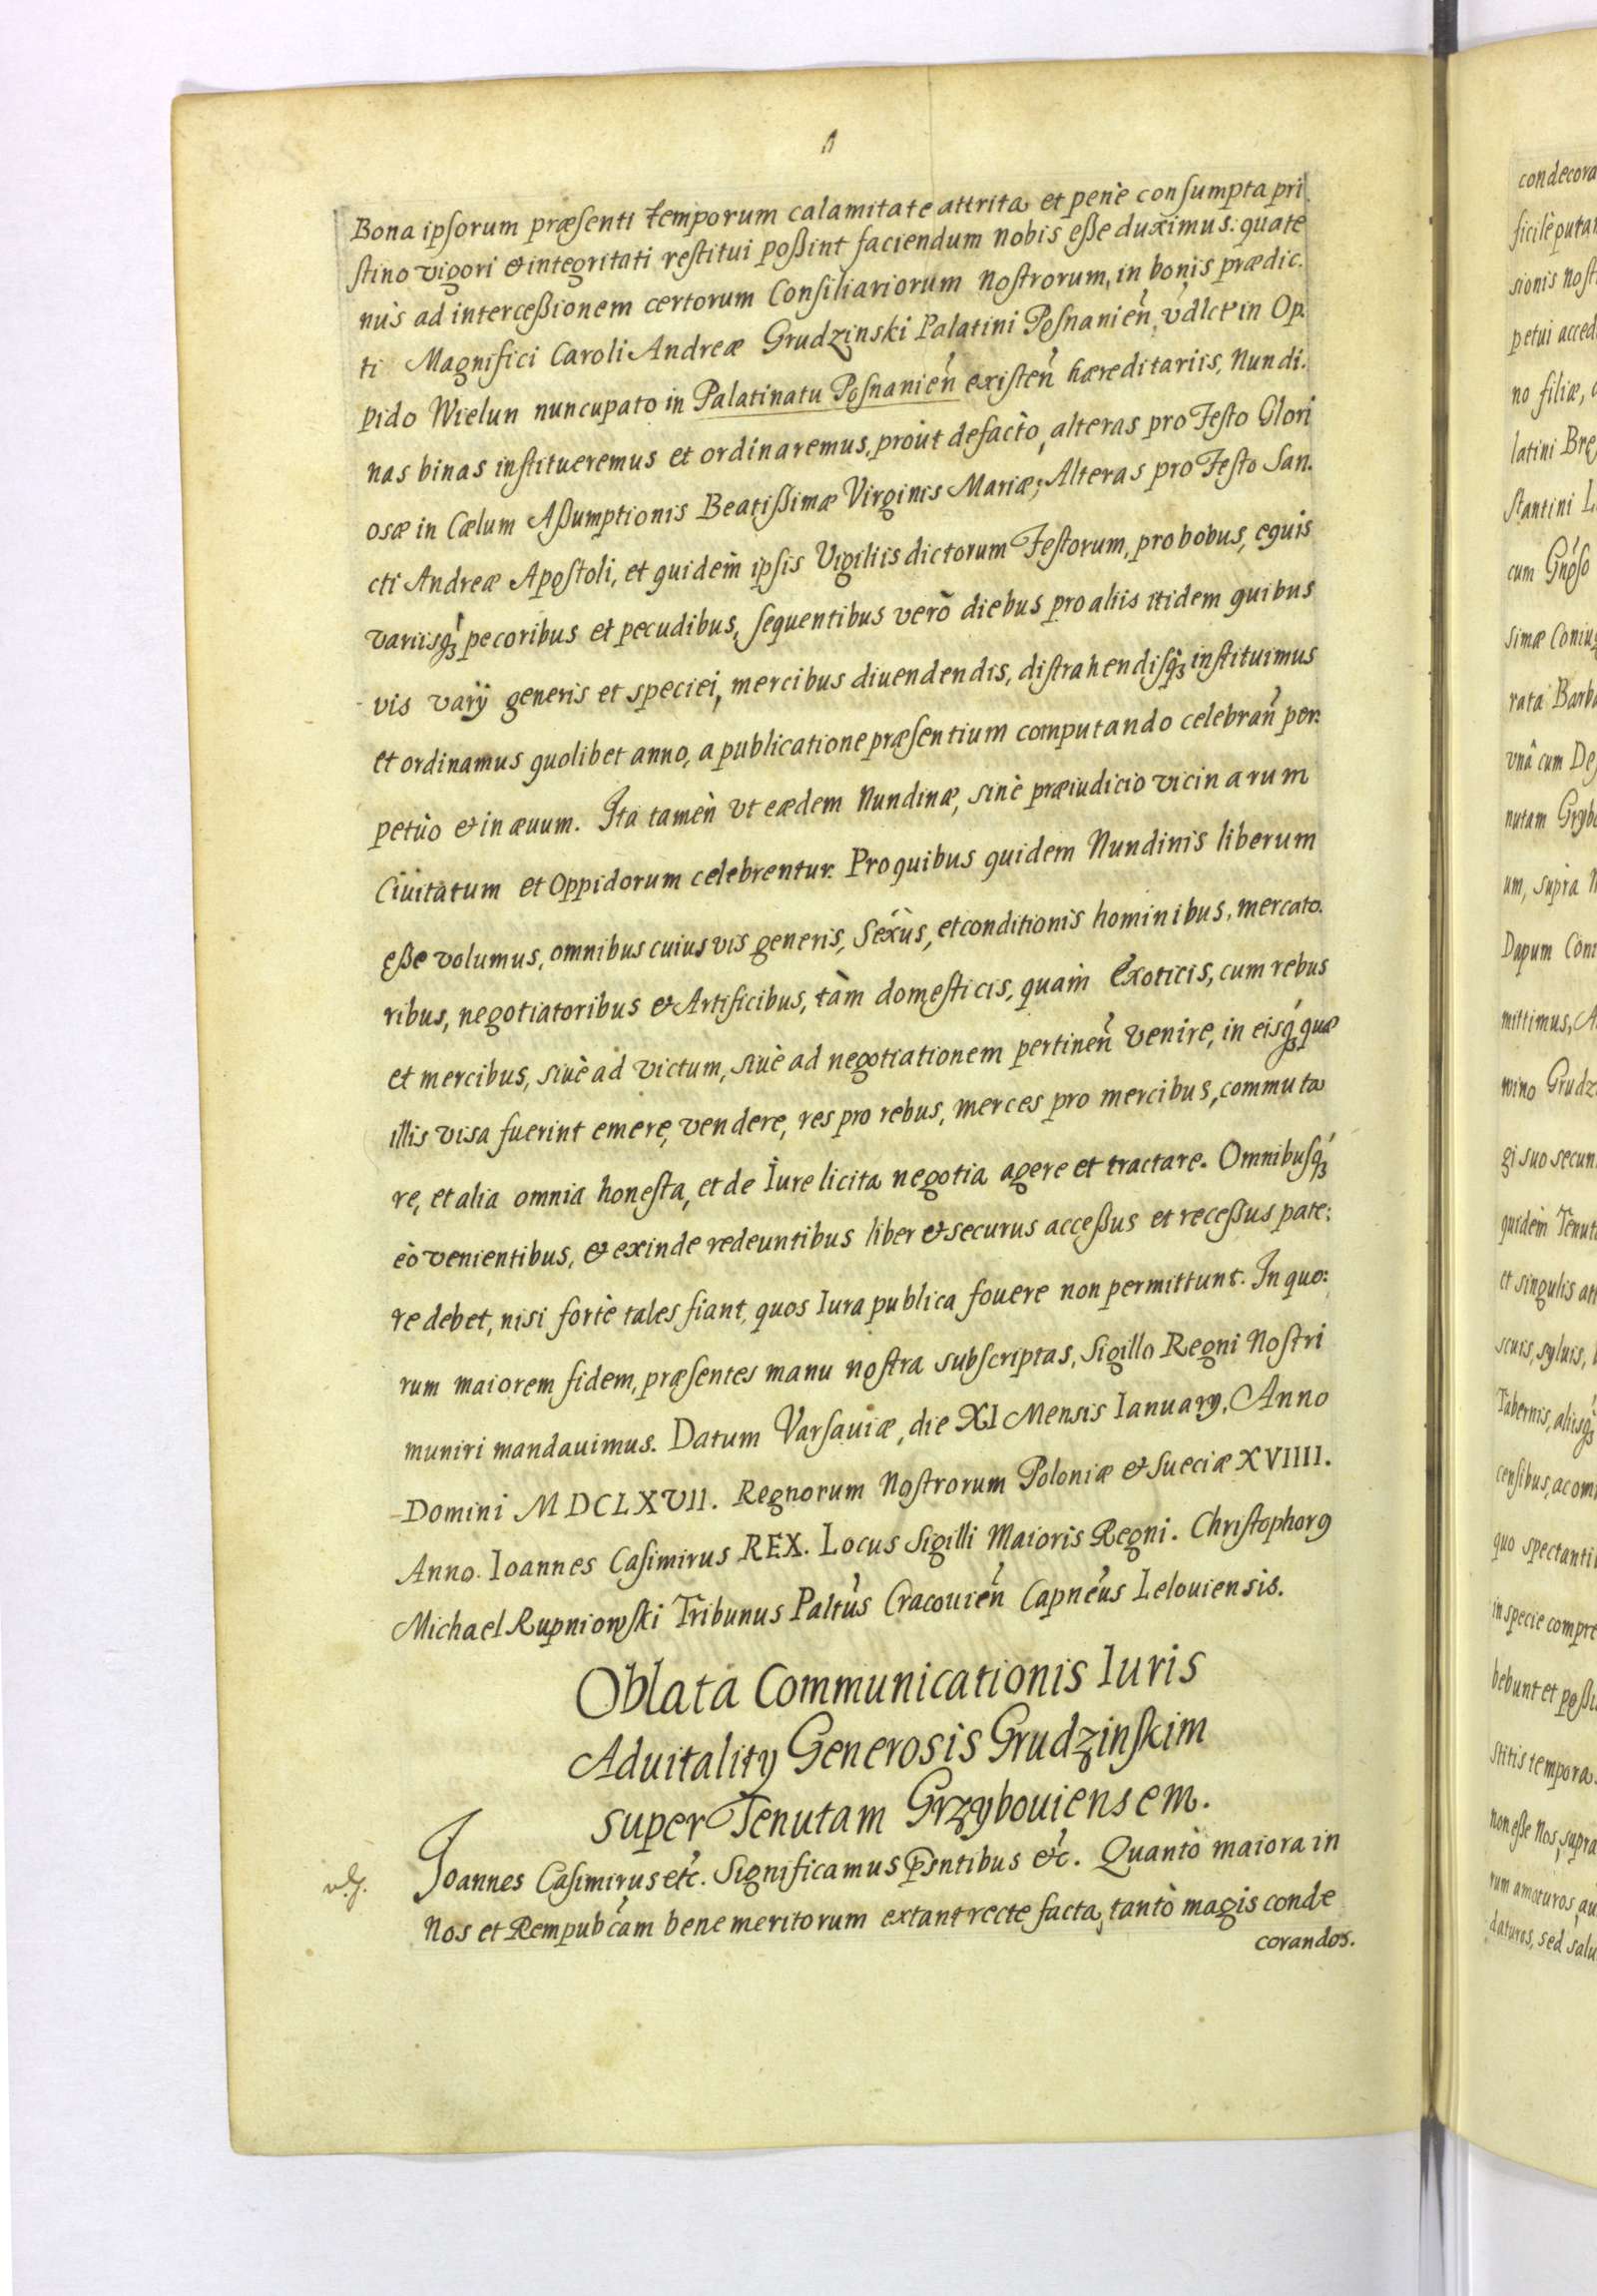 Bona ipsorum præsenti temporum calamitate attrita et penè consumpta pri
stino vigori & integritati restitui poßint faciendum nobis eße duximus: quate
nùs ad interceßionem certorum Consiliariorum Nostrorum, in bonis prædic.
ti Magnifici Caroli Andreæ Grudzinski Palatini Posnanien̄, vdlct in Op.
pido Wielun nuncupato in Palatinatu Posnanien̄ existen̄ hæreditariis, Nundi.
nas binas institueremus et ordinaremus, proùt defacto, alteras pro Festo Glori
osæ in Cælum Aßumptionis Beatißimæ Virginis Mariæ; Alteras pro Festo San.
cti Andreæ Apostoli, et quidem̀ ipsis Vigiliis dictorum Festorum, pro bobus, equis
variisq́ꝫ pecoribus et pecudibus, sequentibus verò diebus pro aliis itidem quibus
vis varÿ generis et speciei, mercibus diuendendis, distrahendisq́ꝫ instituimus
et ordinamus quolibet anno, a publicatione præsentium computando celebran̄ per:
petùo & in æuum. Ita tamen̄ vt eædem Nundinæ, sinè præiudicio vicinarum
Ciuitatum et Oppidorum celebrentur. Pro quibus quidem Nundinis liberum
eße volumus, omnibus cuiusvis generis, Sexùs, et conditionis hominibus, mercato.
ribus, negotiatoribus & Artificibus, tàm domesticis, quam̀ Exoticis, cum rebus
et mercibus, siuè ad victum, siuè ad negotiationem pertinen̄ venire, in eisq́ꝫ quæ
illis visa fuerint emere, vendere, res pro rebus, merces pro mercibus, commuta
re, et alia omnia honesta, et de Iure licita negotia agere et tractare. Omnibusq́ꝫ
eò venientibus, & exinde redeuntibus liber & securus acceßus et receßus pate:
re debet, nisi fortè tales fiant, quos Iura publica fouere non permittunt. In quo:
rum maiorem fidem, præsentes manu nostra subscriptas, Sigillo Regni Nostri
muniri mandauimus. Datum Varsauiæ, die XI Mensis Ianuarÿ, Anno
Domini MDCLXVII. Regnorum Nostrorum Poloniæ & Sueciæ XVIIII.
Anno. Ioannes Casimirus REX. Locus Sigilli Maioris Regni. Christophorꝰ
Michael Rupniowski Tribunus Paltùs Cracouien̄ Capneùs Lelouiensis.
Oblata Communicationis Iuris
Aduitalitÿ Generosis Grudzinskim
super Tenutam Grzybouiensem.
Ioannes Casimirus etc̀. Significamus p̄sntibus &c̀. Quantò maiora in
Nos et Rempubcàm bene meritorum extant recte facta, tantò magis conde
corandos.
condecora
ficilè puta
sionis Nost
petui acced
no filiæ,
latini Brę
stantini
cum Gnoso
simæ Coniug
rata Barb
vnâ cum De
nutam Grzyb
um, supra
Dapum
mittimus,
mino Grudz
gi suo secun
quidem̀ Tenut
et singulis
scuis, syluis,
Tabernis, aliisq́ꝫ
censibus, ac om
quo spectanti
in specie compre
bebunt et poßi
stitis tempora
non eße Nos, supra
rum amoturos, au
daturos, sed salu